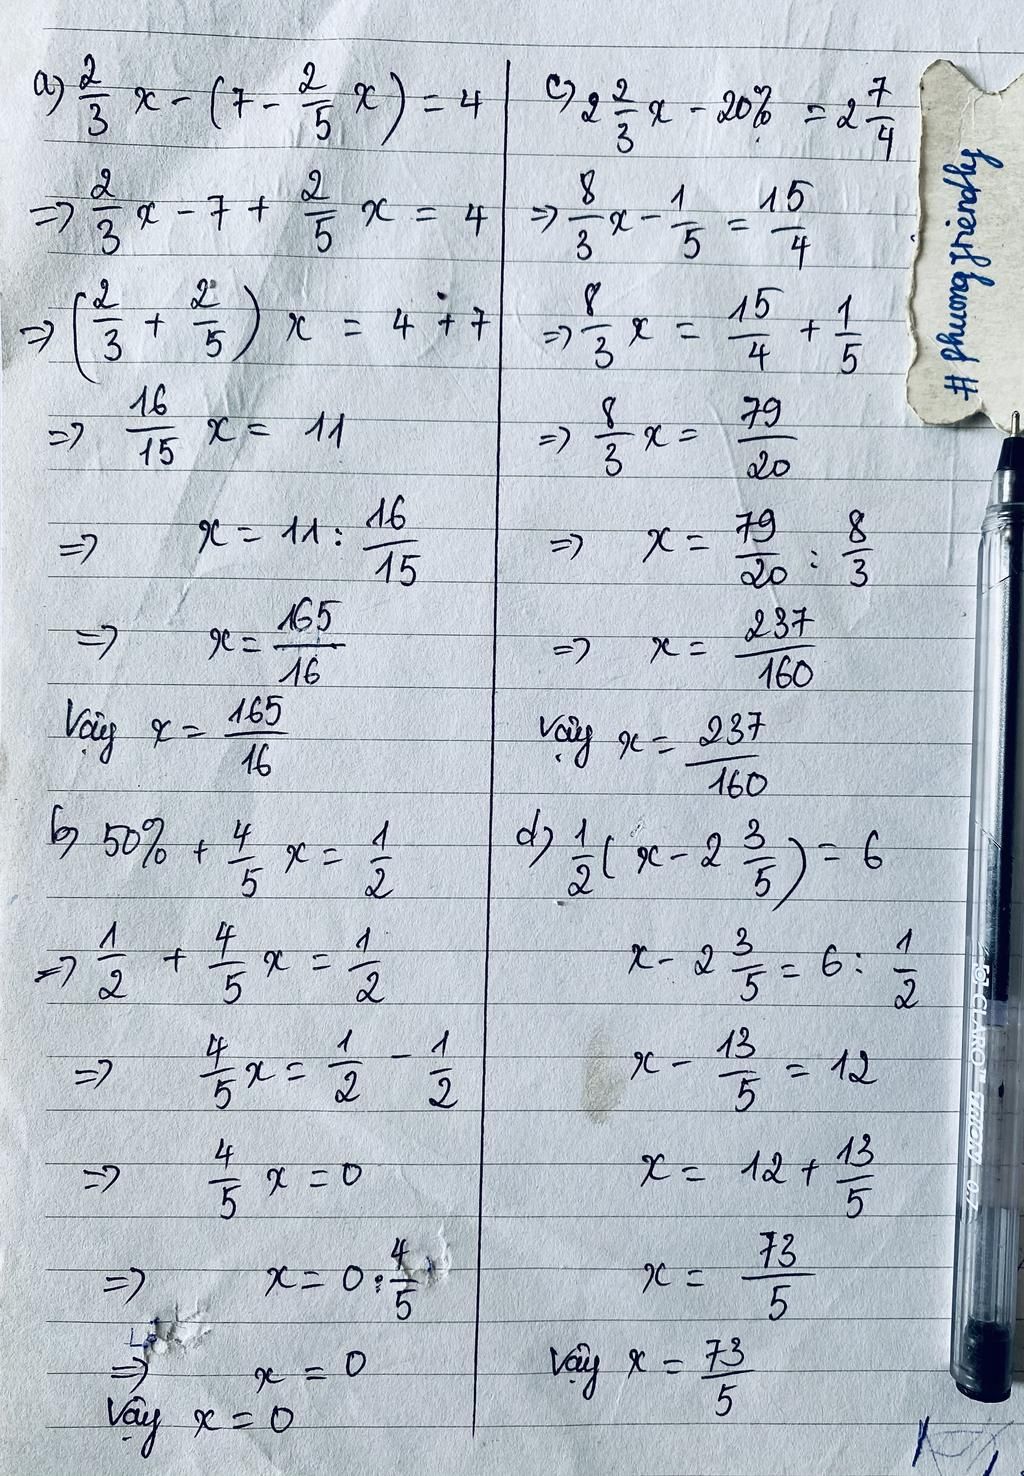 a) 2/3 x - (7 - 2/5 x) = 4
=> 2/3 x - 7 + 2/5 x = 4
=> (2/3 + 2/5) x = 4 + 7
=> 16/15 x = 11
=> x = 11 : 16/15
=> x = 165/16
Vậy x = 165/16
b) 50% + 4/5 x = 1/2
=> 1/2 + 4/5 x = 1/2
=> 4/5 x = 1/2 - 1/2
=> 4/5 x = 0
=> x = 0 : 4/5
=> x = 0
Vậy x = 0
c) 2 2/3 x - 20% = 2 7/4
=> 8/3 x - 1/5 = 15/4
=> 8/3 x = 15/4 + 1/5
=> 8/3 x = 79/20
=> x = 79/20 : 8/3
=> x = 237/160
Vậy x = 237/160
d) 1/2 (x - 2 3/5) = 6
x - 2 3/5 = 6 : 1/2
x - 13/5 = 12
x = 12 + 13/5
x = 73/5
Vậy x = 73/5
# phuongfriendly